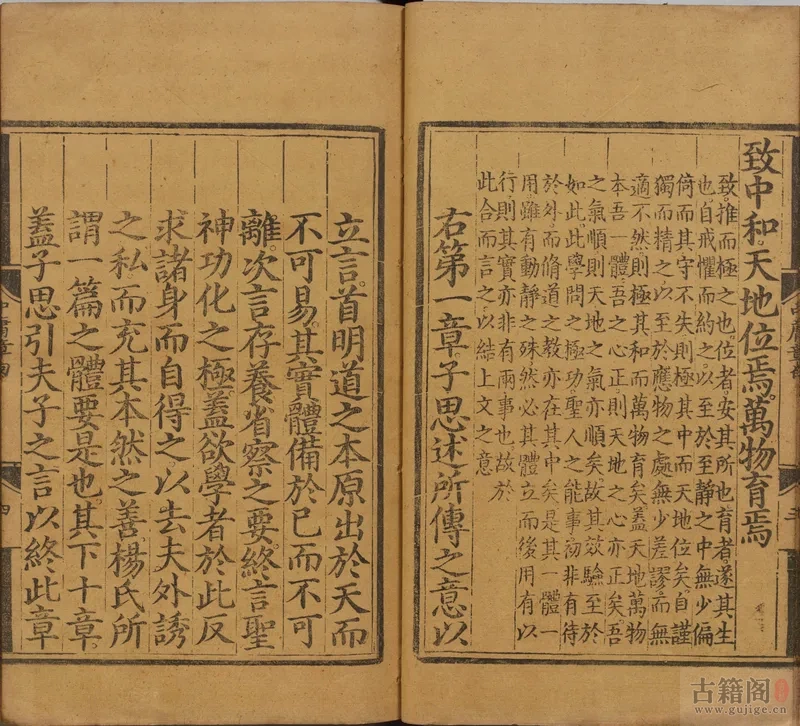 致中和天地位焉萬物育焉
致推而極之也位者安其所也育者遂其生
也自戒懼而約之以至於至靜之中無少偏
倚而其守不失則極其中而天地位矣自謹
獨而精之以至於應物之處無少差謬而無
適不然則極其和而萬物育矣蓋天地萬物
本吾一體吾之心正則天地之心亦正矣吾
之氣順則天地之氣亦順矣故其效驗至於
如此此學問之極功聖人之能事初非有待
於外而脩道之教亦在其中矣是其一體一
用雖有動靜之殊然必其體立而後用有以
行則其實亦非有兩事也故於
此合而言之以結上文之意
右第一章子思述所傳之意以
立言首明道之本原出於天而
不可易其實體備於已而不可
離次言存養省察之要終言聖
神功化之極蓋欲學者於此反
求諸身而自得之以去夫外誘
之私而充其本然之善楊氏所
謂一篇之體要是也其下十章
蓋子思引夫子之言以終此章
四
古籍阁
www.gujige.cn